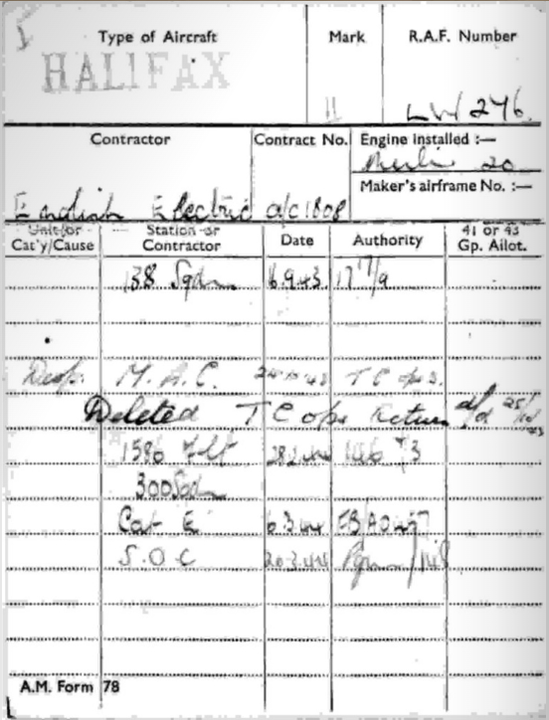 Type of Aircraft Mark R.A.F. Number
HALIFAX II LW 246.
Contractor Contract No. Engine installed :—
Merlin 20
Maker's airframe No. :—
English Electric a/c 1808
Unit or Cat'y/Cause Station or Contractor Date Authority 41 or 43 Gp. Allot.
138 Sqdn 6.9.43 17/9
Desp. M.A.C. T C ops.
Deleted T C ops Return
1586 Flt
300 Sqdn
Cat E 6.3.44
S.O.C 20.3.44
A.M. Form 78